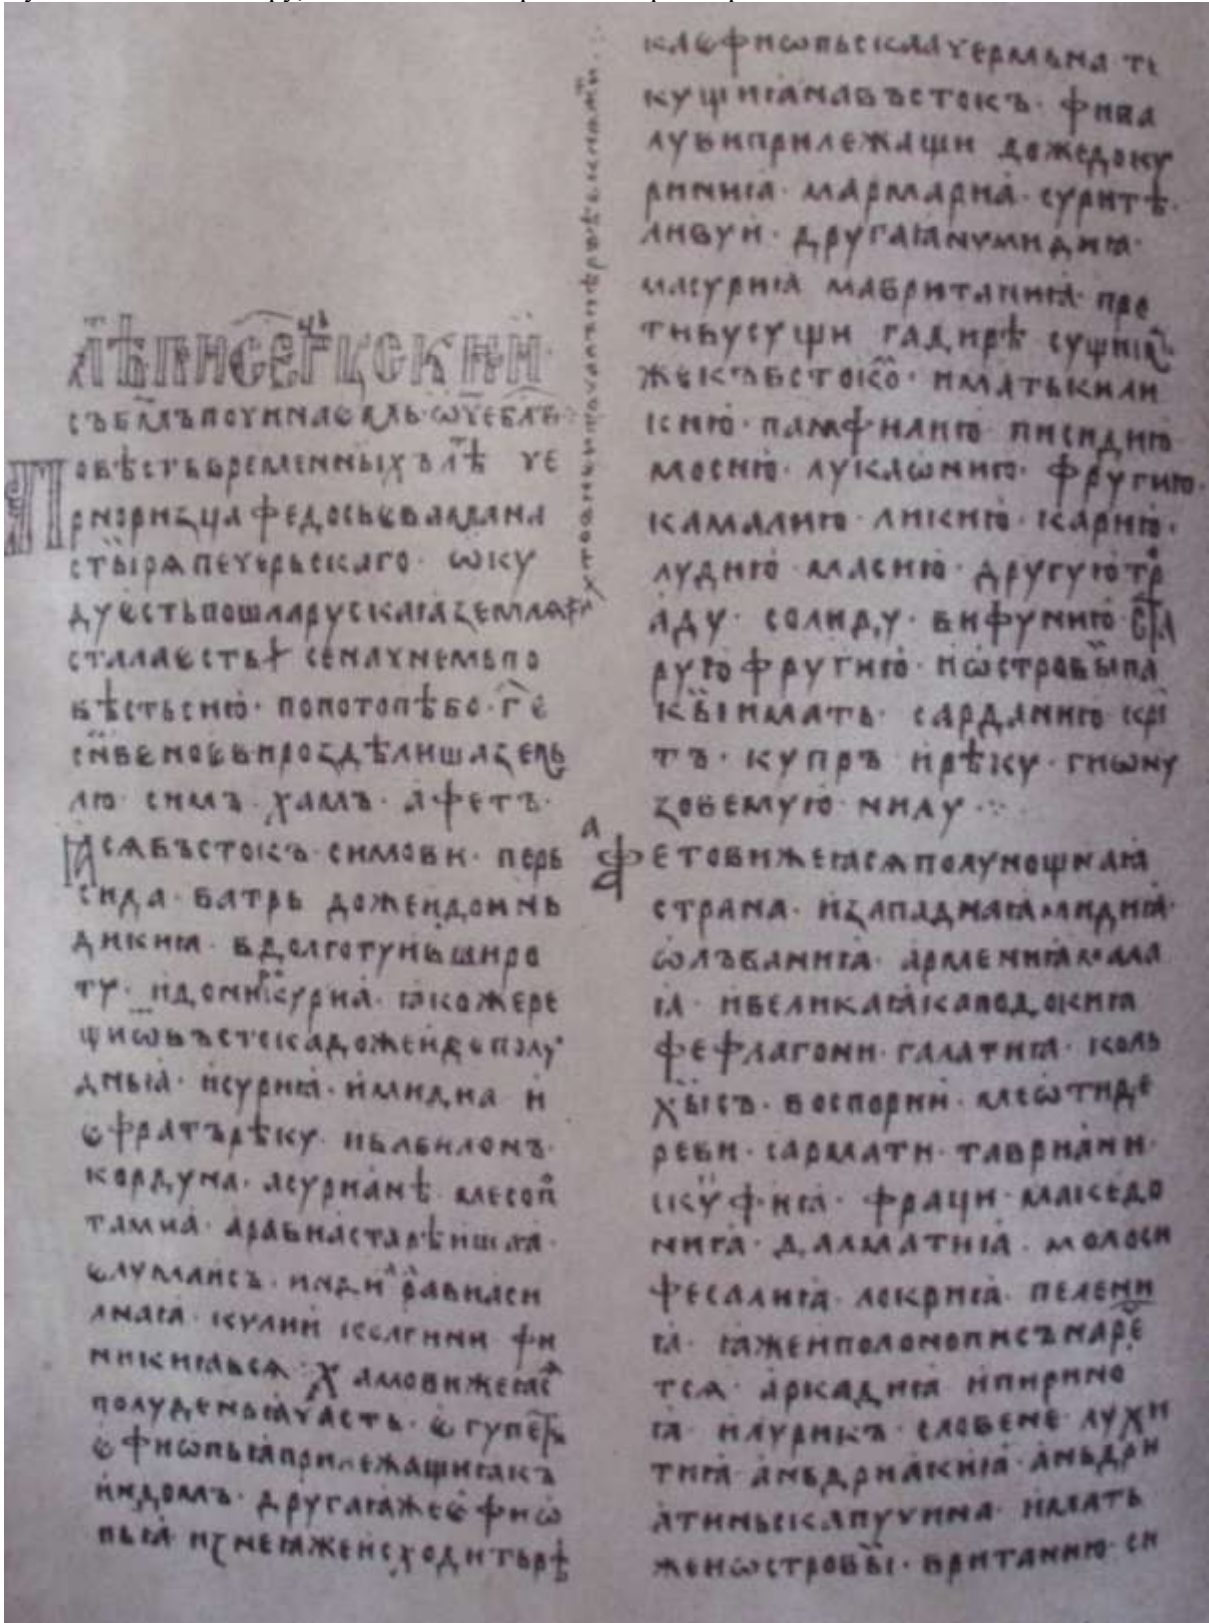 съ б҃мъ починаемь · ѿч҃е бл҃ви ·
Повѣсть временныхъ лѣ҃т че
рноризца федосьева мана
стыірѧ печерьскаго · ѿку
ду єсть пошла рускаꙗ земл
стала єсть се начнемь по
вѣсть сию · по потопѣ бо · г҃ є
сн҃ве ноєви розд ѣлиша зем
лю · симъ · хамъ · афетъ ·
ꙗсѧ въстокъ симови · перь
сида · батрь доже и до инь
дикиꙗ · в долготу и в широ
ту · и до нирокуриꙗ · ꙗкоже ре
щи ѿ въстока доже и до полу
дньꙗ · и суриꙗ · и мидиа и
єфратъ рѣку · вавилонъ ·
кордуна · асурианѣ · месопо
тамиа · аравиа старѣишаꙗ ·
єлумаисъ · инди · равиа си
лнаꙗ · кулии · колгини · фи
никиꙗ всѧ · хамови же ꙗс
полуденьꙗ часть · єгупет
єфиѡпьꙗ прилежащиꙗ къ
индомъ · другаꙗ же єфиѡ
пьꙗ · из неꙗ же исходить рѣ
ка єфиѡпьскаꙗ чермьна те
кущиꙗ на въстокъ · фива
луви прилежащи доже до ку
ринииꙗ · мармариꙗ · суритѣ ·
ливуи · другаꙗ нумидиꙗ ·
масуриꙗ мавританиꙗ · про
тиву сущи гадирѣ сущи
же къ встоко · имать кили
кию · памфилию писидию
мосию · лукаѡнию · фругию ·
камалию · ликию · карию ·
лудию · масию · другую тро
аду · солиду · вифунию · ста
рую фругию · и ѡстровы па
кы имать · сарданию · кри
тъ · купръ и рѣку · гиѡну
зовемую нилу ·
афетови же ꙗсѧ полунощнаꙗ
страна · и западнаꙗ · мидиꙗ ·
ѡлъваниꙗ · армениꙗ мала
ꙗ · и великаꙗ · каподокиꙗ
фефлагони · галатиꙗ · коль
хысъ · воспории · меѡти · де
реви · сармати · тавриани ·
скуфиꙗ · фраци · македо
ниꙗ · далматиꙗ · молоси
фесалиꙗ · локриꙗ · пелени
ꙗ · ꙗже и полопонисъ наре
тсѧ · аркадиꙗ · ипирино
ꙗ · илурикъ · словене · лухи
тиꙗ · аньдриакиꙗ · аньдри
атиньска пучина · имать
же и ѡстровы · вританию · си